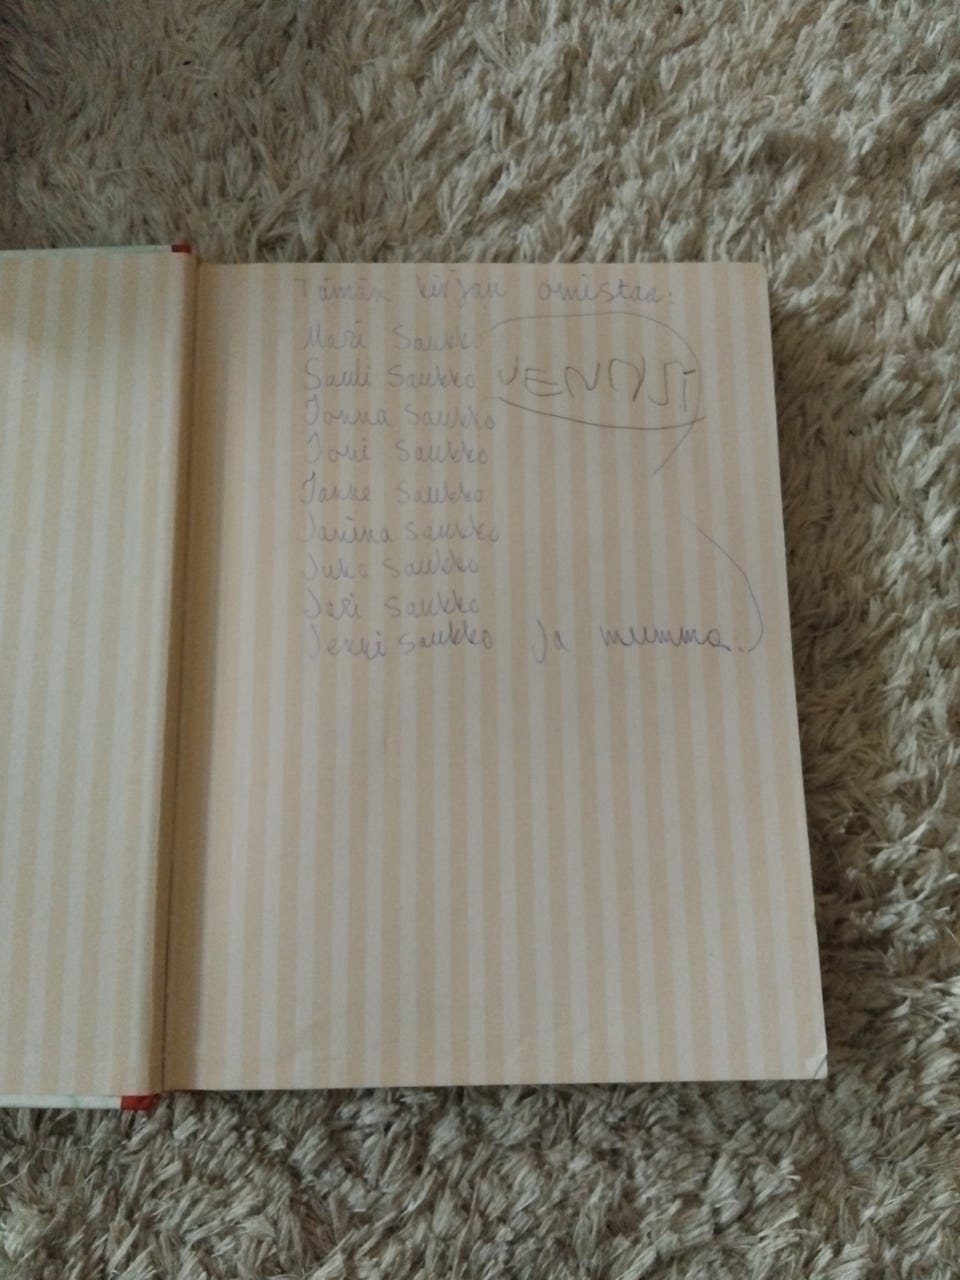 Tämän kirjan omistaa:
Mari Saukko
Sauli Saukko
JENNSI
Jonna Saukko
Joni Saukko
Janne Saukko
Janina Saukko
Juko Saukko
Jari Saukko
Saukko ja mumma.